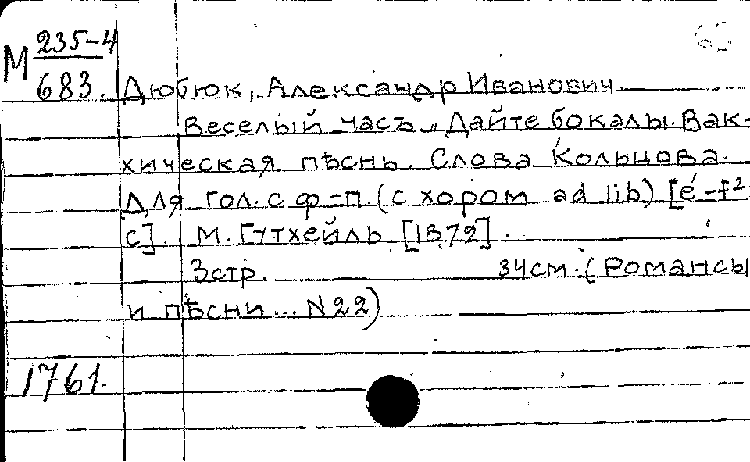 М 235-4
683.
Дюбюк, Александр Иванович
Веселый часъ. „Дайте бокалы. Вак-
хическая пѣснь. Слова Кольцова.
Для гол. с ф-п (с хором ad lib) [é-f²
с]. М. Гутхейль [1872].
3стр. 34см. (Романсы
и пѣсни... N22)
1761.